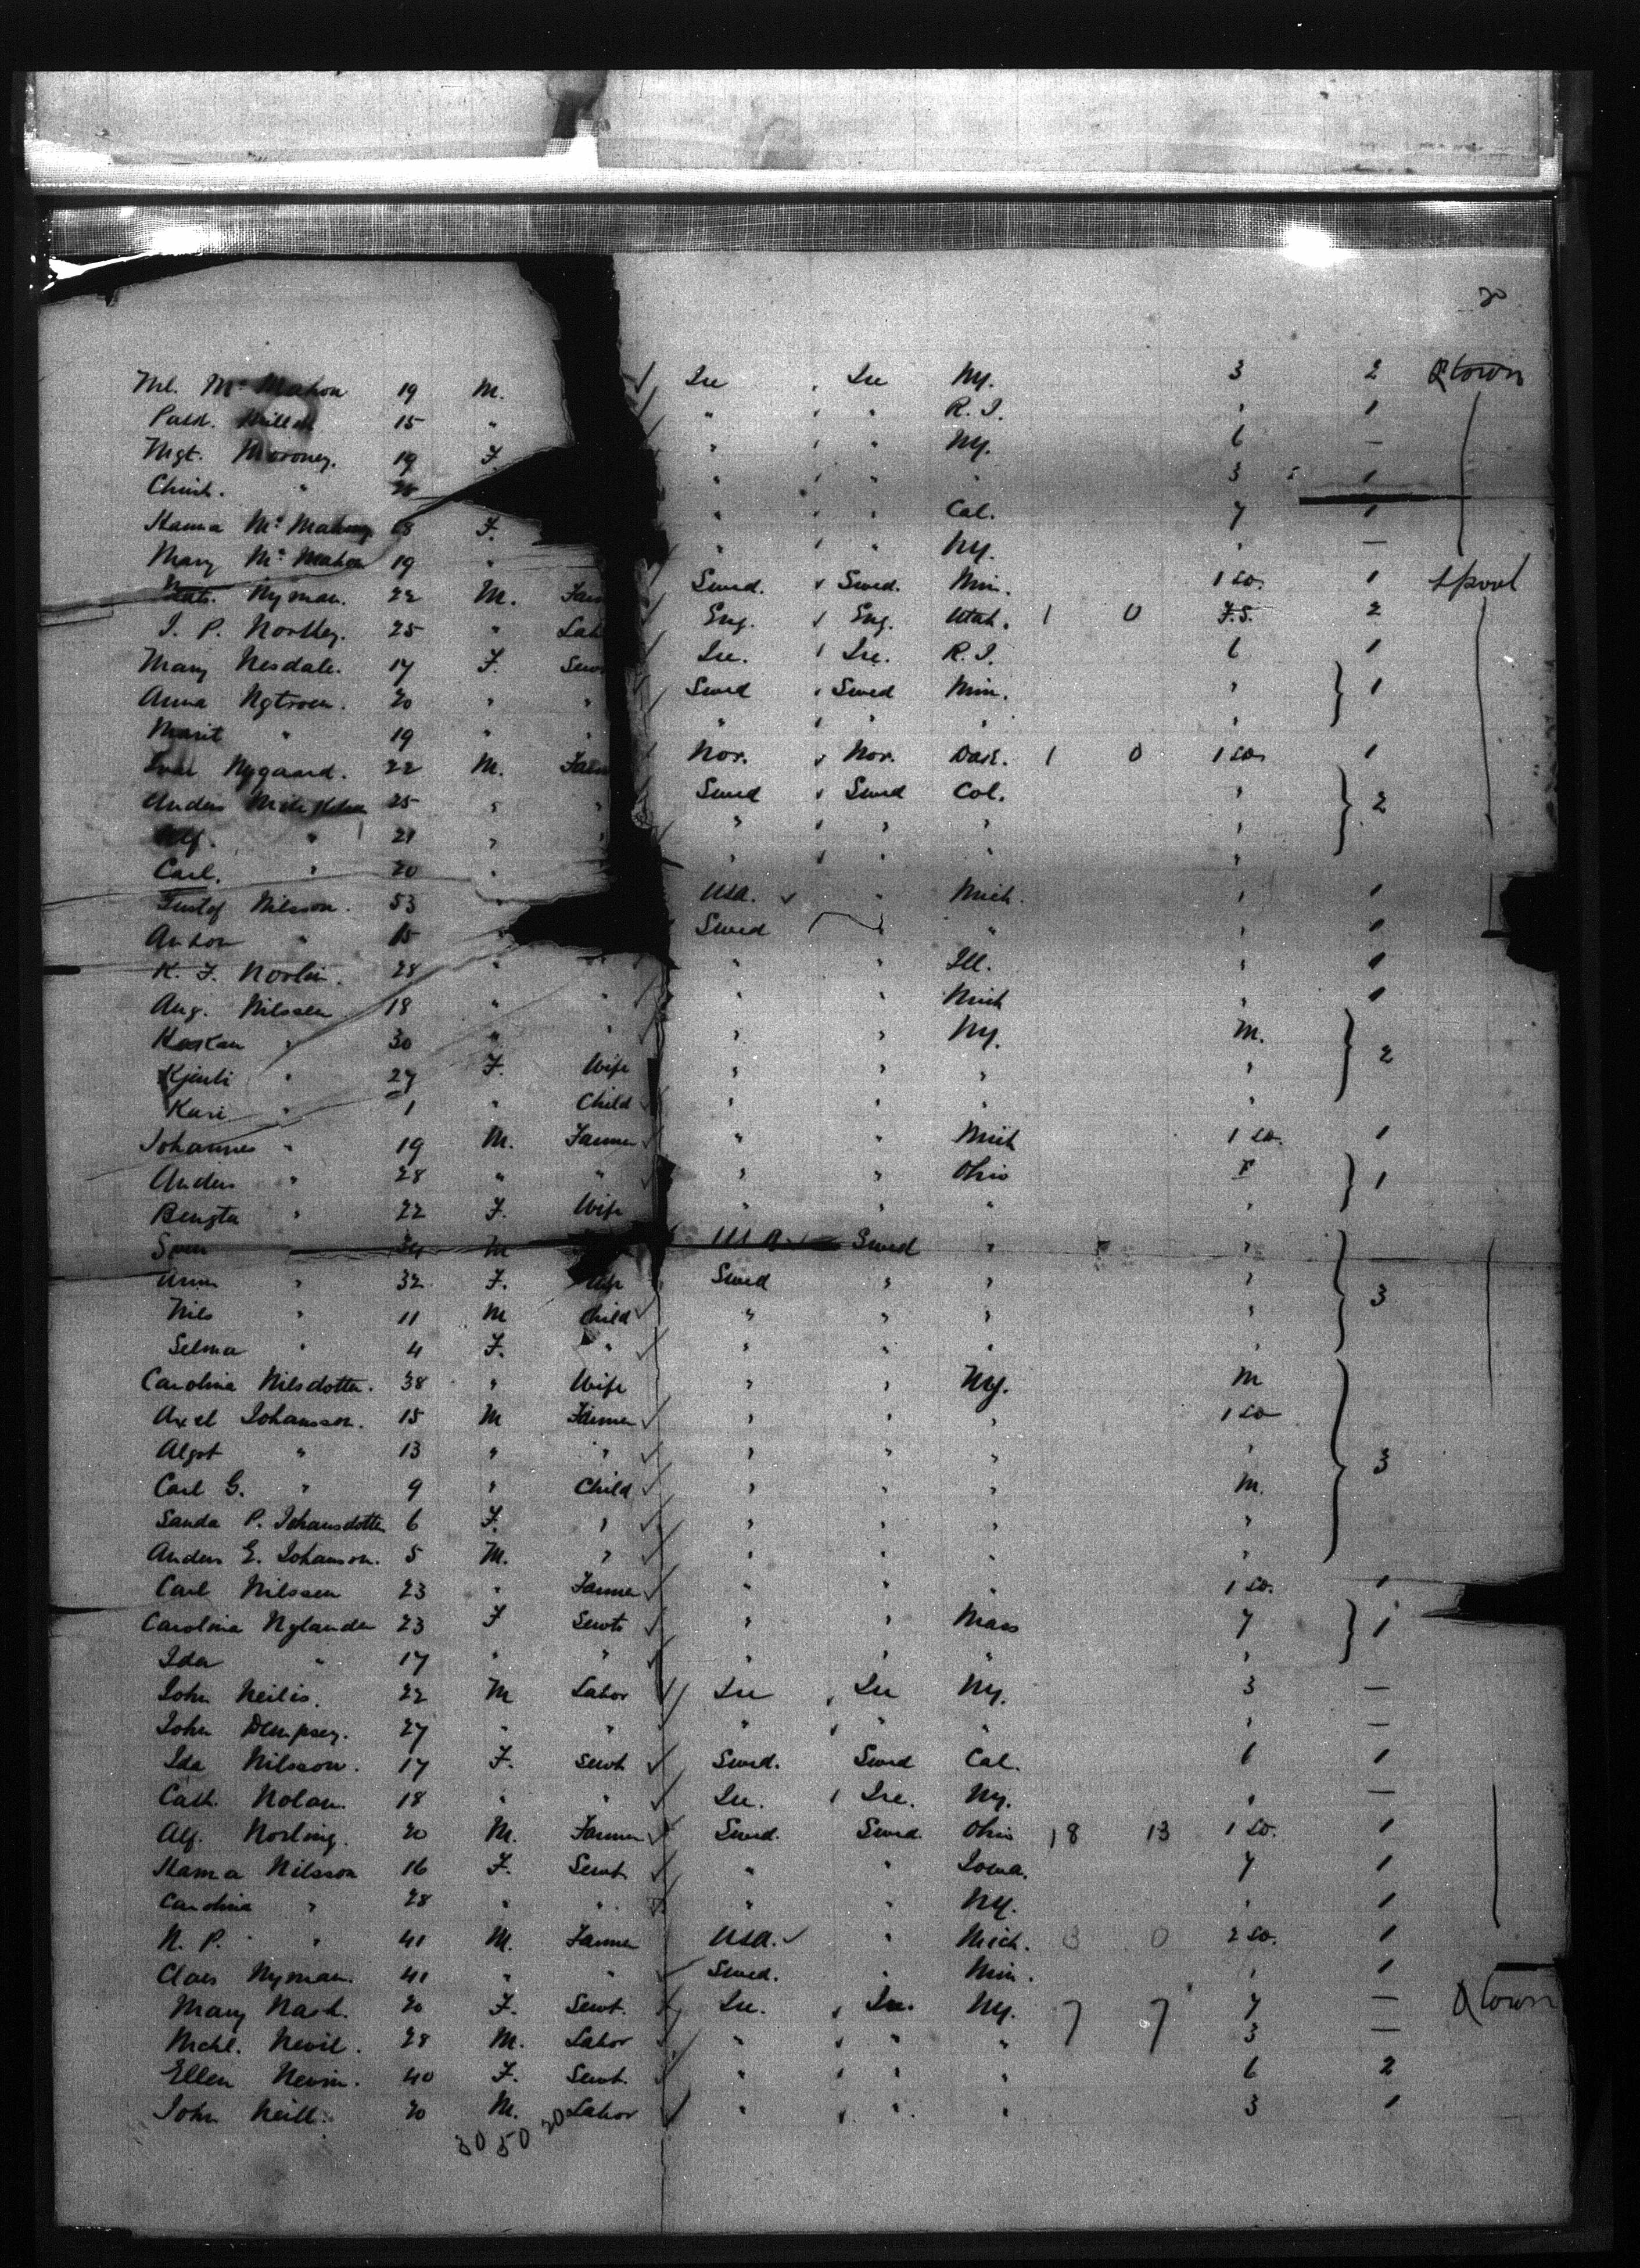 20
Ml. McMahon 19 M. Ire Ire Ny. 3 2 Qtown
Patk. 15 " " " R.I. " 1
Mgt. Moroney. 19 F. " " Ny. 6 —
Christ. " " " " 3 1
Hanna McMahon 18 F. " " Cal. 7 1
Mary McMahon 19 " " " Ny. " —
Nyman. 22 M. Swed. Swed. Min. 1 so. 1 Lpool
J. P. Northey. 25 " Eng. Eng. Utah. 1 0 F.S. 2
Mary Nesdale. 17 F. Ire. Ire. R.I. 6 1
Anna Nytroen. 20 " " Swed Swed Min. " 1
Marit " 19 " " " " " "
Nygaard. 22 M. Nor. Nor. Dak. 1 0 1 so 1
Anders 25 " " Swed Swed Col. " 2
Alf. " 21 " " " " " "
Carl. " 20 " " " " "
Gustof Nilsson. 53 USA. " Mich. " 1
Anton " 15 Swed " " " 1
K. F. Norlin. 28 " " " " Ill. " 1
Aug. Nilssen 18 " " " " Mich " 1
Haskan " 30 " " " " Ny. M. 2
Kjersti " 27 F. Wife " " " "
Kari " 1 " Child " " " "
Johannes " 19 M. Farmer " " Mich 1 so. 1
Anders " 28 " " " " Ohio F 1
Bengta " 22 F. Wife " " " "
Sven 34 M Swed " " 3
Anna " 32 F. Wife Swed " " "
Nils " 11 M Child " " " "
Selma " 4 F. " " " " "
Carolina Nilsdotter. 38 " Wife " " Ny. M 3
Axel Johansson. 15 M Farmer " " " 1 so
Algot " 13 " " " " " "
Carl G. " 9 " Child " " " M.
Sanda P. Johansdotter 6 F. " " " " "
Anders E. Johanson. 5 M. " " " " "
Carl Nilssen 23 " Farmer " " " 1 so. 1
Carolina Nylander 23 F Sewts " " Mass 7 1
Ida " 17 " " " " " "
John Neilis. 22 M Labor Ire Ire Ny. 3 —
John Dempsey. 27 " " " " " " —
Ida Nilsson. 17 F. Sewt Swed. Swed Cal. 6 1
Cath. Nolan. 18 " " Ire. Ire. Ny. " —
Alf. Norling. 20 M. Farmer Swed. Swed. Ohio 18 13 1 so. 1
Hanna Nilsson 16 F. Sewt " " Iowa. 7 1
Carolina " 28 " " " " Ny. " 1
N. P. " 41 M. Farmer USA. " Mich. 3 0 2 so. 1
Claes Nyman. 41 " " Swed. " Min. " 1
Mary Nash. 20 F. Sewt. Ire. Ire. Ny. 7 7 7 — Qtown
Michl. Nevil. 28 M. Labor " " " 3 —
Ellen Nevin. 40 F. Sewt. " " " 6 2
John Neill. 20 M. Labor " " " 3 1
30 50 20